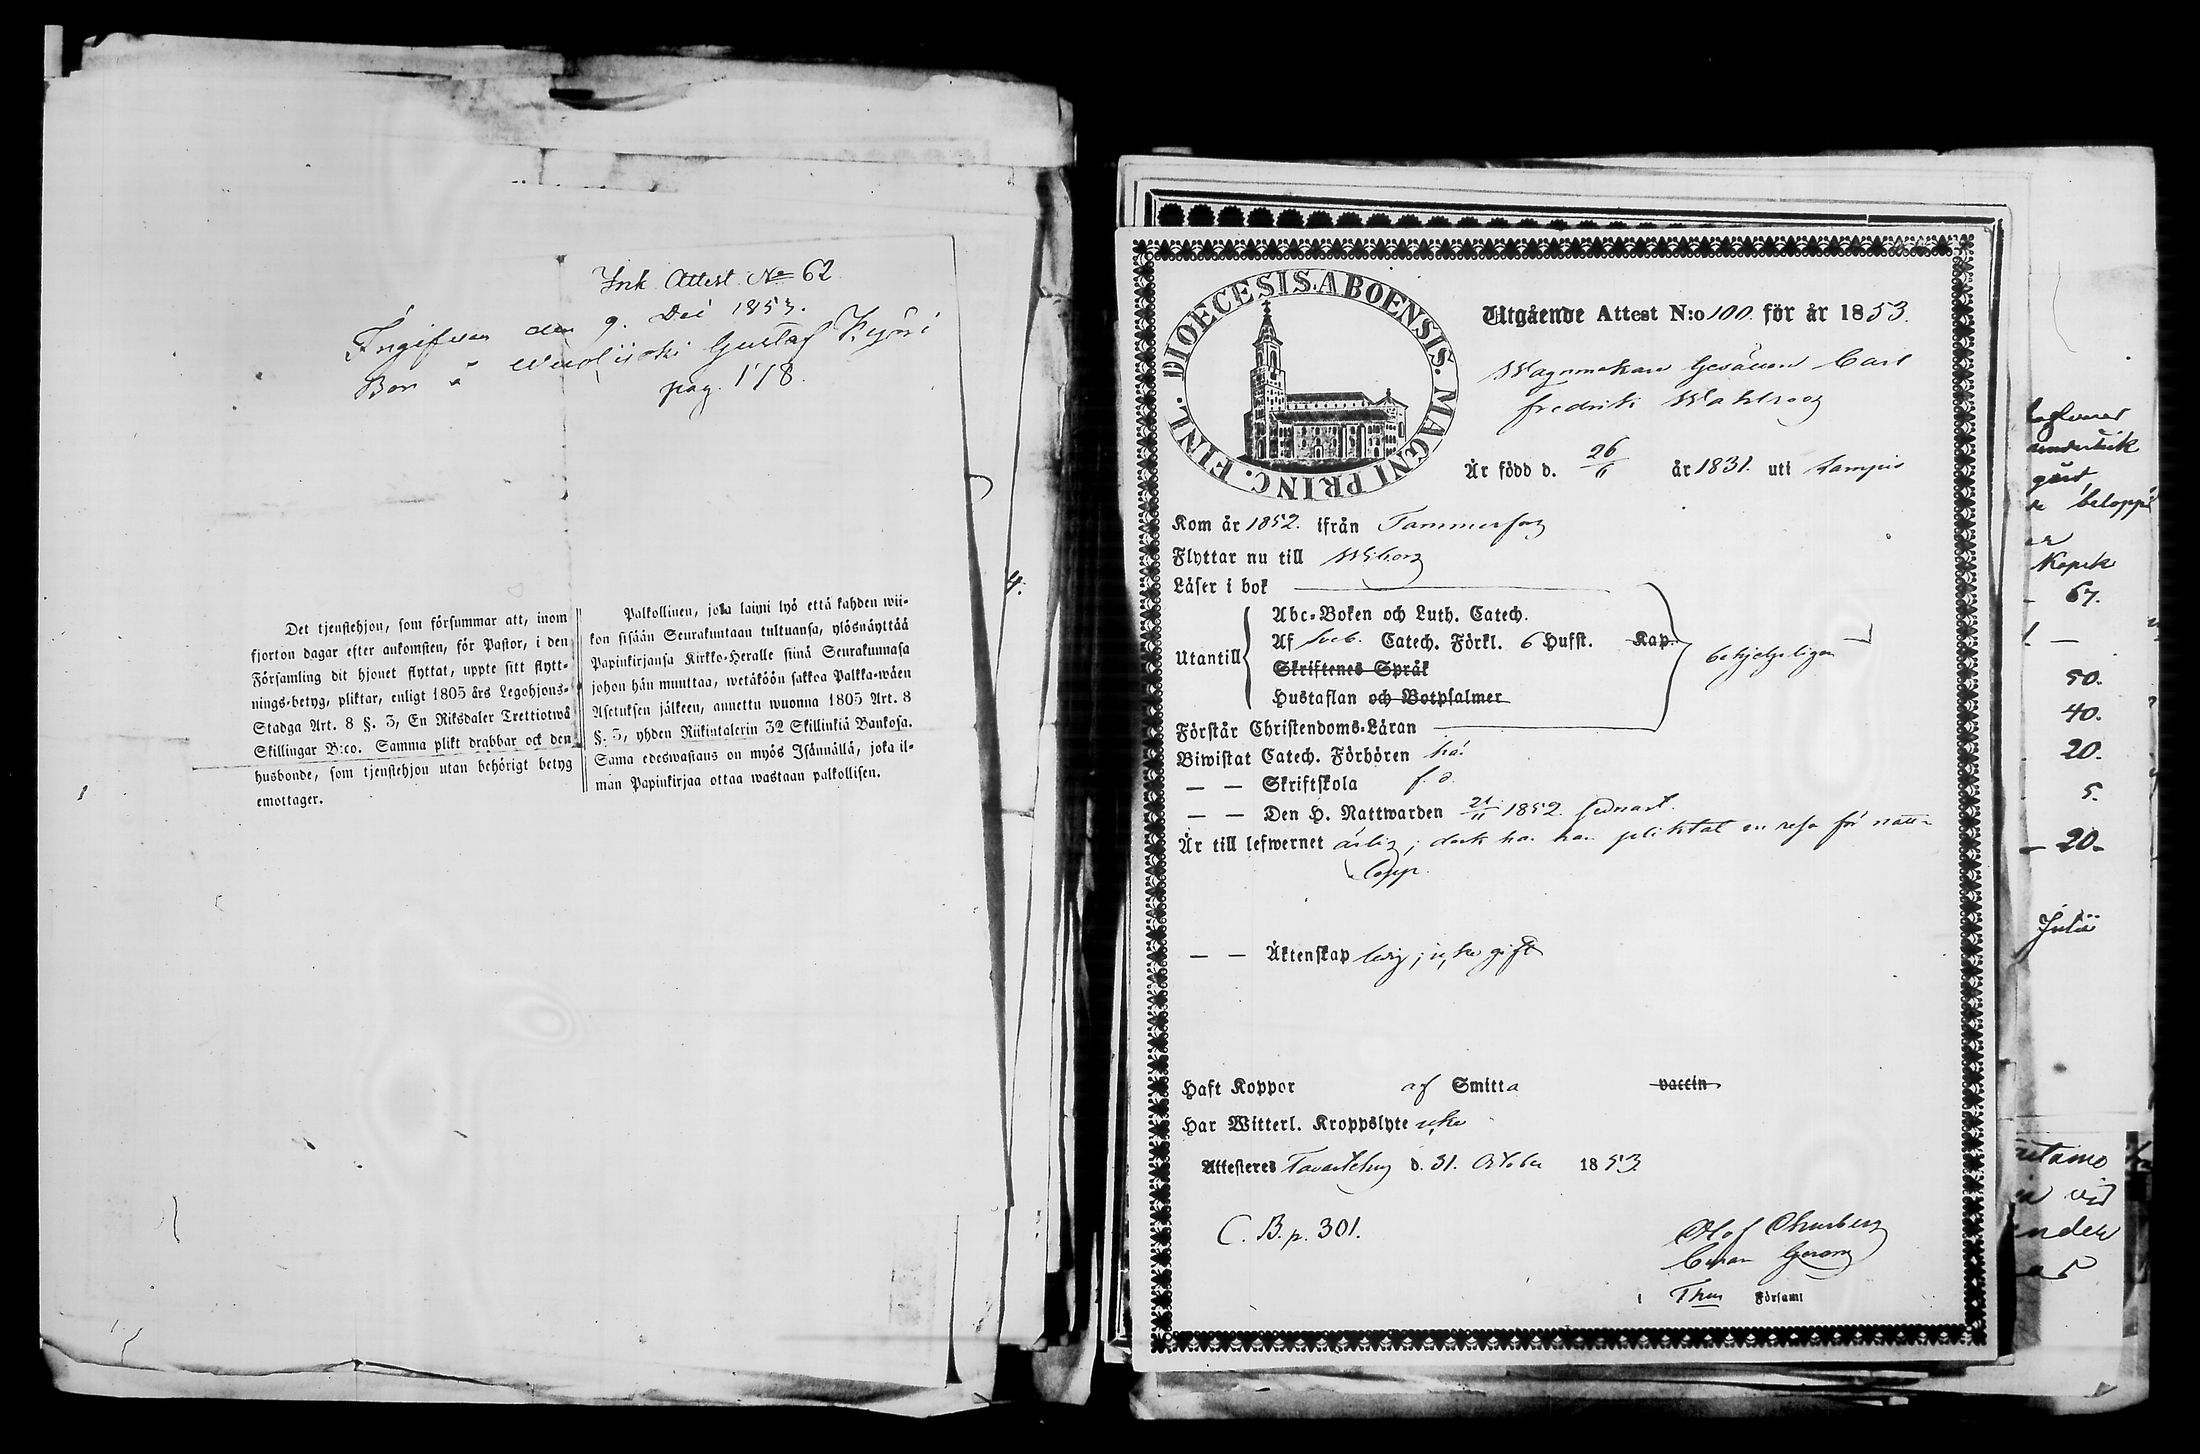 Ink. Attest. No 62
Ingifven den 9. Dec 1853.
Bor å Gustaf
pag. 178.
Det tjenstehjon, som försummar att, inom
fjorton dagar efter ankomsten, för Pastor, i den
Församling dit hjonet flyttat, uppte sitt flytt-
nings-betyg, pliktar, enligt 1805 års Legohjons-
Stadga Art. 8 §. 3, En Riksdaler Trettiotwå
Skillingar B:co. Samma plikt drabbar ock den
husbonde, som tjenstehjon utan behörigt betyg
emottager.
Palkollinen, joka laimi lyö että kahden wii-
kon sisään Seurakuntaan tultuansa, ylösnäyttää
Papinkirjansa Kirkko-Heralle siinä Seurakunnasa
johon hän muuttaa, wetäköön sakkoa Palkka-wäen
Asetuksen jälkeen, annettu wuonna 1805 Art. 8
§. 3, yhden Riikintalerin 32 Skillinkiä Bankosa.
Sama edeswastaus on myös Isännällä, joka il-
man Papinkirjaa ottaa wastaan palkollisen.
4.
DIOECESIS. ABOENSIS. MAGNI PRINC. FINL.
Utgående Attest N:o 100. för år 1853.
Wagnmakare Gesällen Carl
Fredrik Wahlroos
Är född d. 26/6 år 1831. uti Lampis
Kom år 1852. ifrån Tammerfors
Flyttar nu till Wiborg
Läser i bok
Abc-Boken och Luth. Catech.
Utantill Af Sveb. Catech. Förkl. 6 Hufst. Kap. behjelpligen
Skriftenes Språk
Hustaflan och Botpsalmer
Förstår Christendoms-Läran
Biwistat Catech. Förhören
— — Skriftskola f. d.
— — Den H. Nattwarden 21/11 1852. sednast.
Är till lefwernet ärlig; dock har han pliktat en resa för natt-
lopp.
— — Äktenskap ledig; icke gift
Haft Koppor af Smitta vaccin
Har Witterl. Kroppslyte icke
Attesteres Tavastehus d. 31. October 1853
C. B. p. 301.
Olof
i Thus Församl
Kopek
67.
50.
40.
20.
5.
20.
Julii